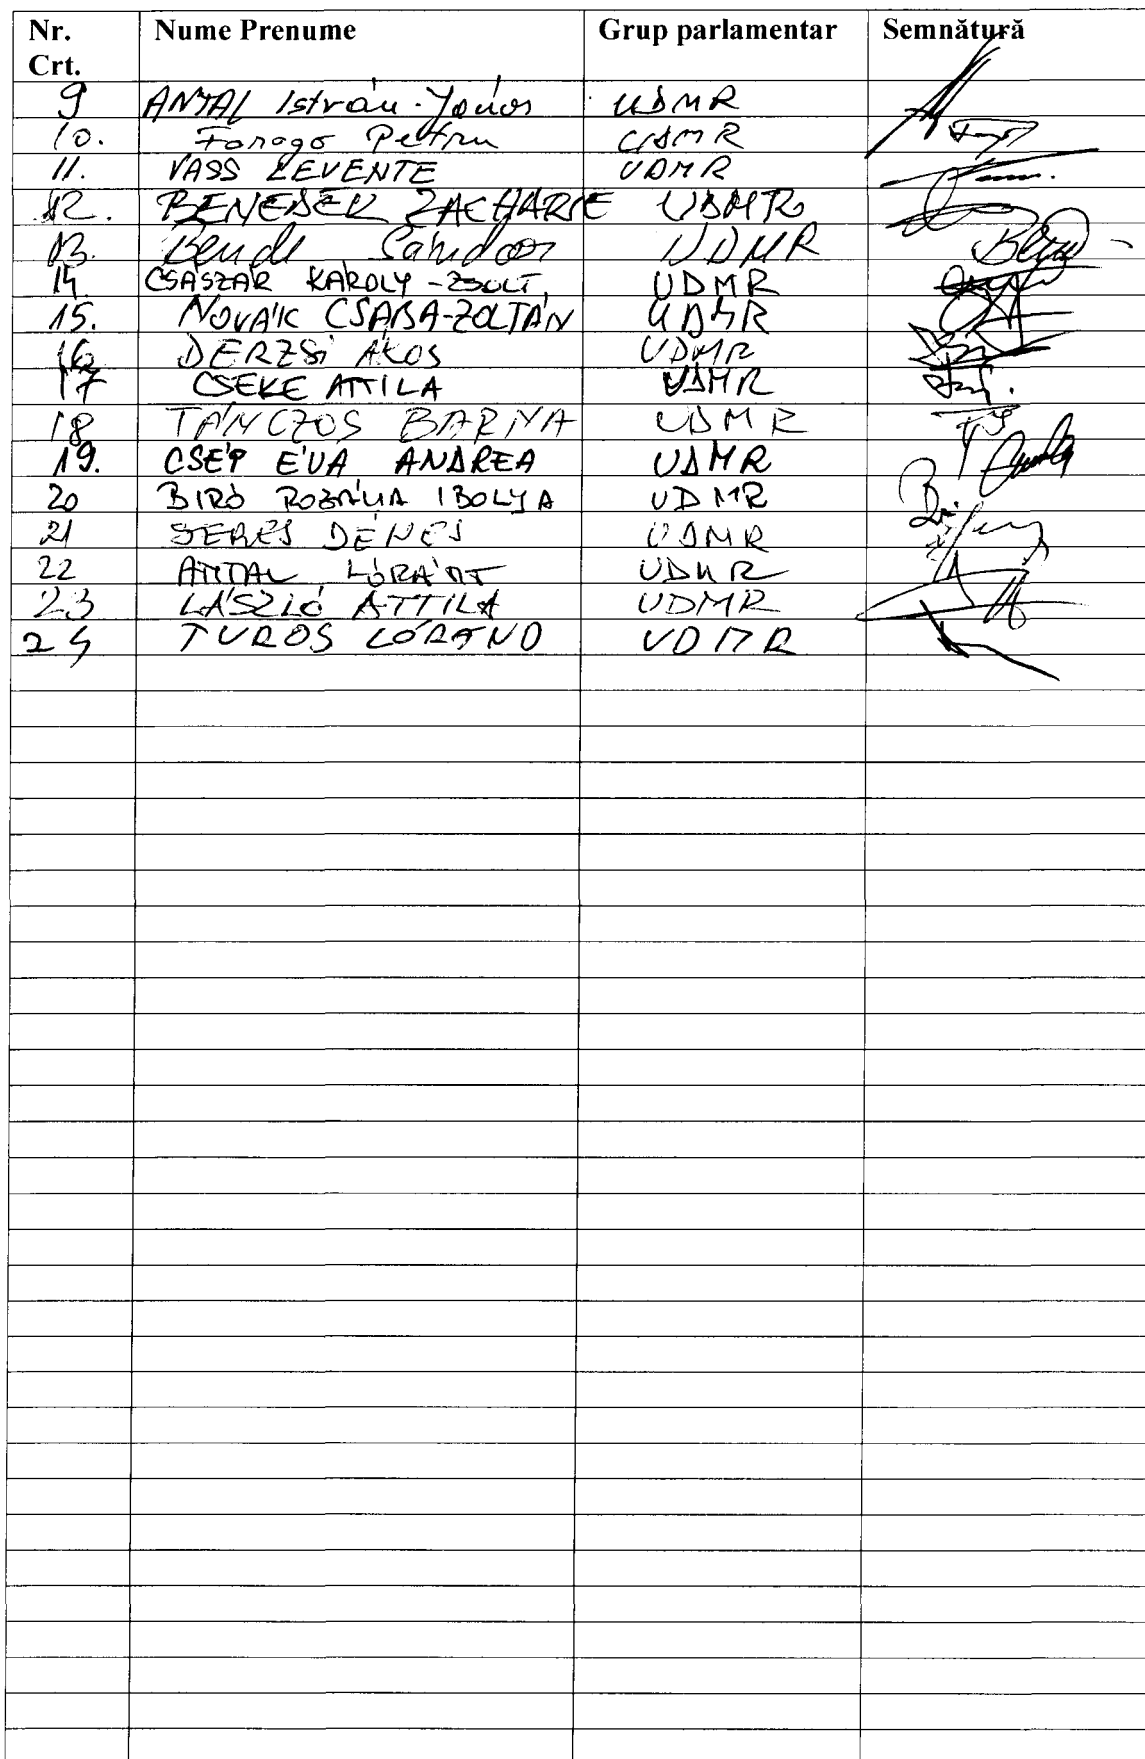 Nr. Crt. Nume Prenume Grup parlamentar Semnătură
9 ANTAL István-János UDMR
10. Faragó Petru UDMR
11. VASS LEVENTE UDMR
12. BENEDEK ZACHARIE UDMR
13. Bende Sándor UDMR
14. CSÁSZÁR KÁROLY-ZSOLT UDMR
15. NOVÁK CSABA-ZOLTÁN UDMR
16 DERZSI ÁKOS UDMR
17 CSEKE ATTILA UDMR
18 TÁNCZOS BARNA UDMR
19. CSÉP ÉVA ANDREA UDMR
20 BIRÓ ROZÁLIA IBOLYA UDMR
21 SERES DÉNES UDMR
22 ANTAL LÓRÁNT UDMR
23 LÁSZLÓ ATTILA UDMR
24 TUROS LÓRÁND UDMR